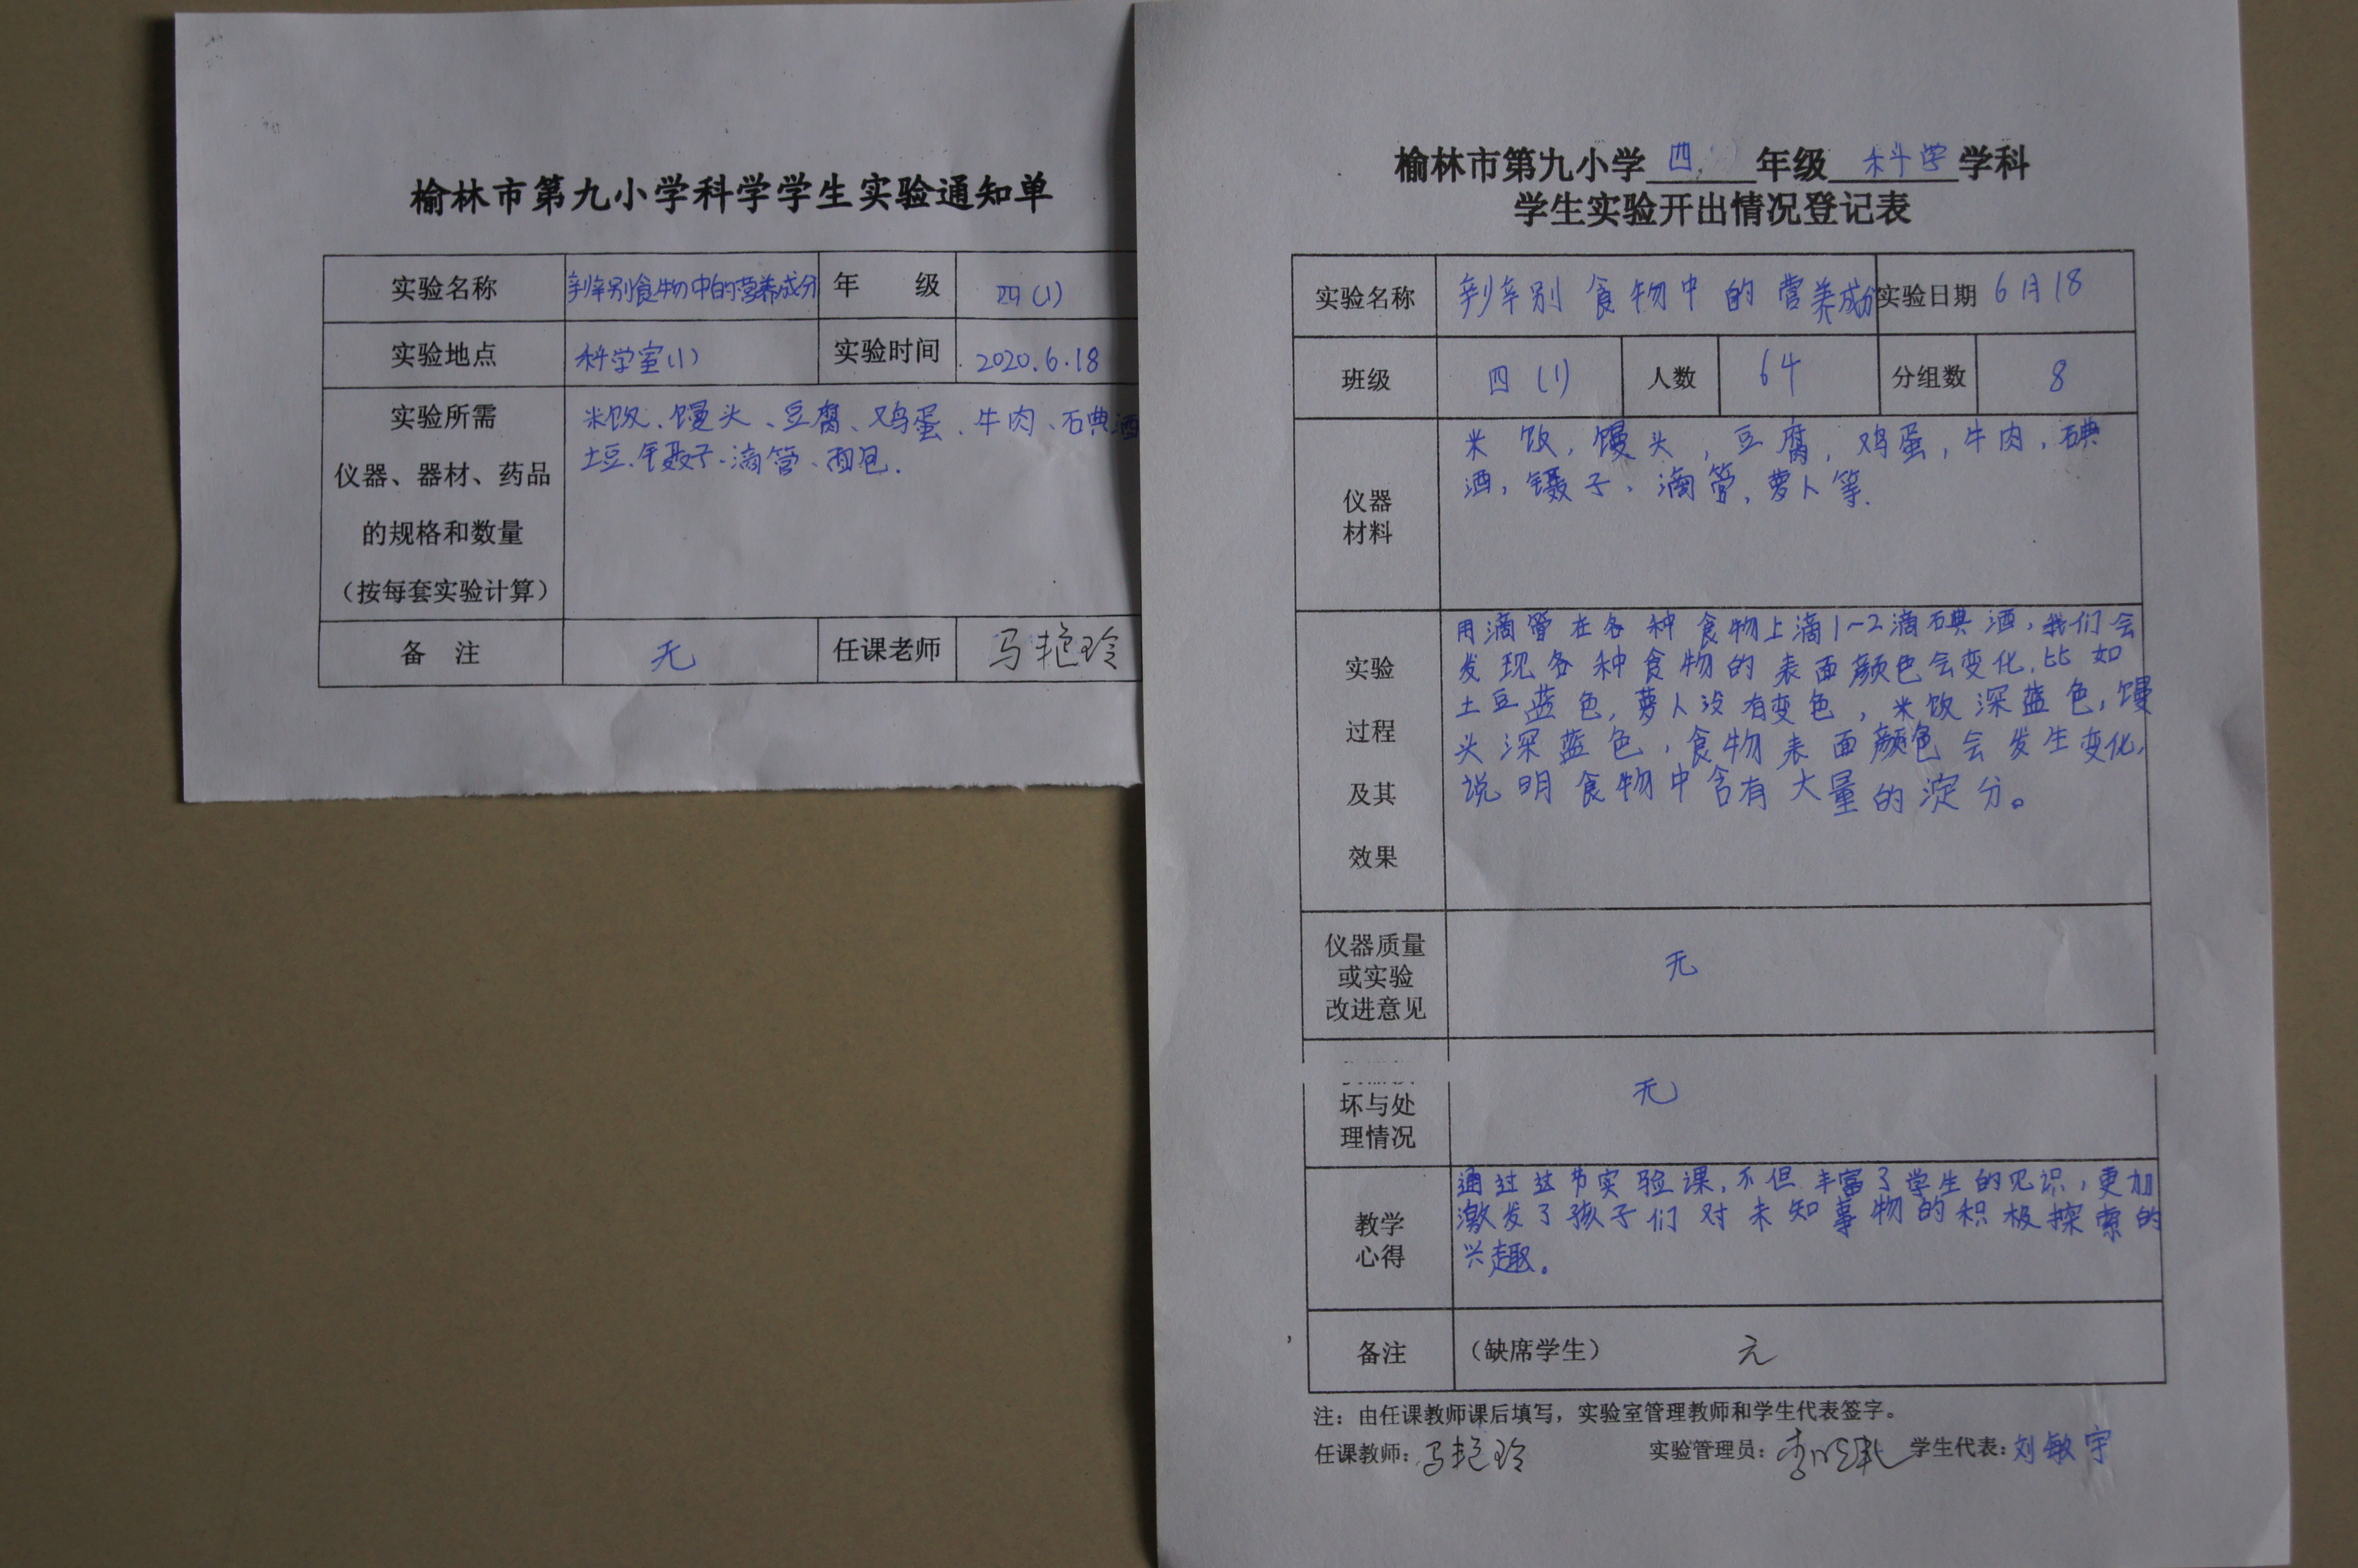 榆林市第九小学科学学生实验通知单
实验名称 辨别食物中的营养成分 年 级 四(1)
实验地点 科学室(1) 实验时间 2020.6.18
实验所需
仪器、器材、药品
的规格和数量
(按每套实验计算)
米饭、馒头、豆腐、鸡蛋、牛肉、碘酒
土豆、镊子、滴管、面包.
备 注 无 任课老师 马艳玲
榆林市第九小学 四 年级 科学 学科
学生实验开出情况登记表
实验名称 辨别食物中的营养成分 实验日期 6月18
班级 四(1) 人数 64 分组数 8
仪器
材料
米饭,馒头,豆腐,鸡蛋,牛肉,碘
酒,镊子、滴管,萝卜等.
实验
过程
及其
效果
用滴管在各种食物上滴1~2滴碘酒,我们会
发现各种食物的表面颜色会变化,比如
土豆蓝色,萝卜没有变色,米饭深蓝色,馒
头深蓝色,食物表面颜色会发生变化,
说明食物中含有大量的淀分。
仪器质量
或实验
改进意见
无
坏与处
理情况
无
教学
心得
通过这节实验课,不但丰富了学生的见识,更加
激发了孩子们对未知事物的积极探索的
兴趣。
备注 (缺席学生) 无
注:由任课教师课后填写,实验室管理教师和学生代表签字。
任课教师:马艳玲 实验管理员: 学生代表:刘敏宇